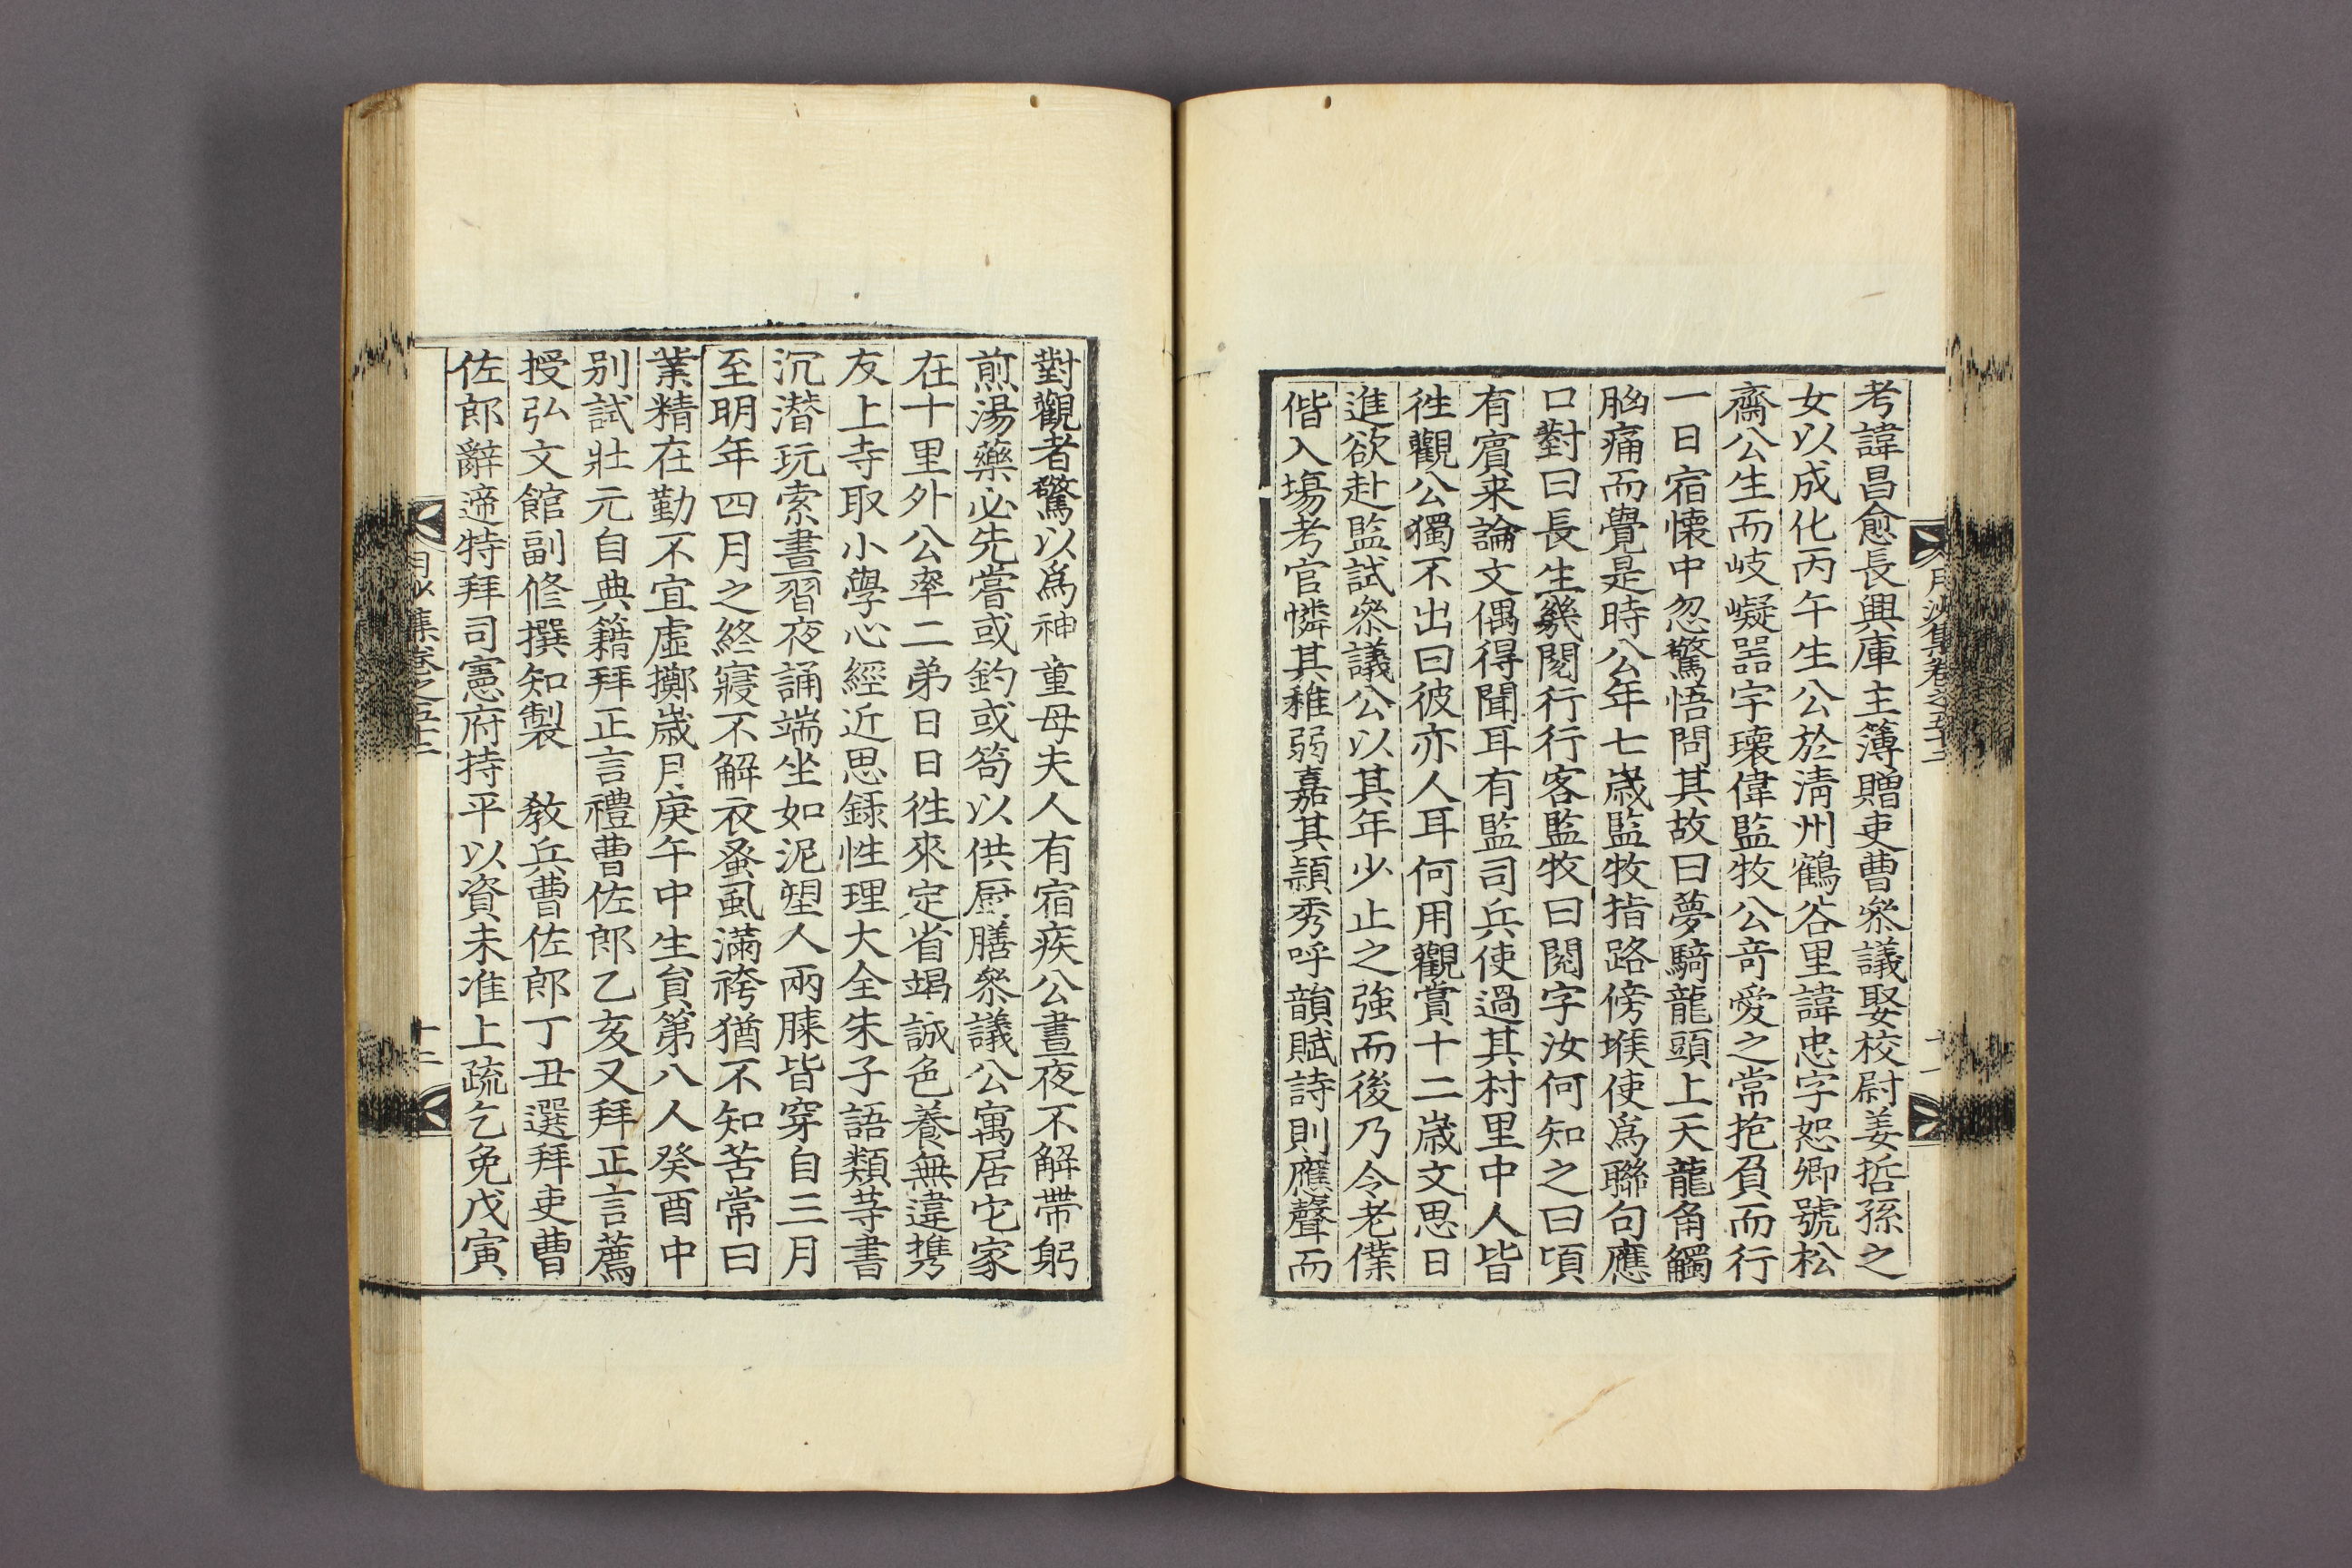 考諱昌愈長興庫主簿贈吏曹叅議娶校尉姜哲孫之
女以成化丙午生公於淸州鶴谷里諱忠字恕卿號松
齋公生而岐嶷噐宇瓌偉監牧公竒愛之常抱負而行
一日宿懷中忽驚悟問其故曰夢騎龍頭上天龍角觸
胸痛而覺是時公年七歲監牧指路傍堠使爲聯句應
口對曰長生幾閱行行客監牧曰閱字汝何知之曰頃
有賔来論文偶得聞耳有監司兵使過其村里中人皆
徃觀公獨不出曰彼亦人耳何用觀賞十二歲文思日
進欲赴監試叅議公以其年少止之強而後乃令老僕
偕入塲考官憐其稚弱嘉其頴秀呼韻賦詩則應聲而
月沙集卷之五十三
十一
對觀者驚以爲神童母夫人有宿疾公晝夜不解帶躬
煎湯藥必先嘗或釣或笱以供厨膳叅議公寓居它家
在十里外公率二弟日日徃來定省竭誠色養無違携
友上寺取小學心經近思錄性理大全朱子語類等書
沉潛玩索晝習夜誦端坐如泥塑人兩膝皆穿自三月
至明年四月之終寢不解衣蚤虱滿袴猶不知苦常曰
業精在勤不宜虛擲歲月庚午中生員第八人癸酉中
別試壯元自典籍拜正言禮曹佐郎乙亥又拜正言薦
授弘文館副修撰知製　敎兵曹佐郎丁丑選拜吏曹
佐郎辭遞特拜司憲府持平以資未准上疏乞免戊寅
月沙集卷之五十三
十二